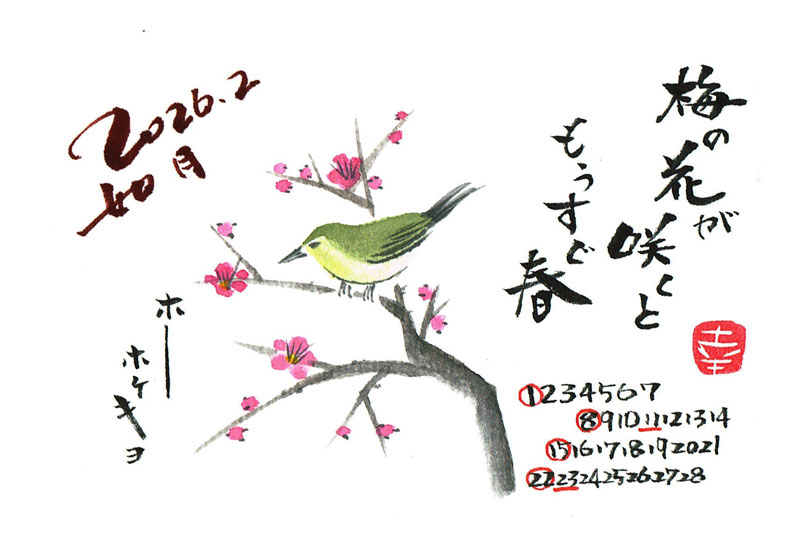 2026.2
如月
梅の花が
咲くと
もうすぐ
春
幸
ホー
ホケキョ
1 2 3 4 5 6 7
8 9 10 11 12 13 14
15 16 17 18 19 20 21
22 23 24 25 26 27 28